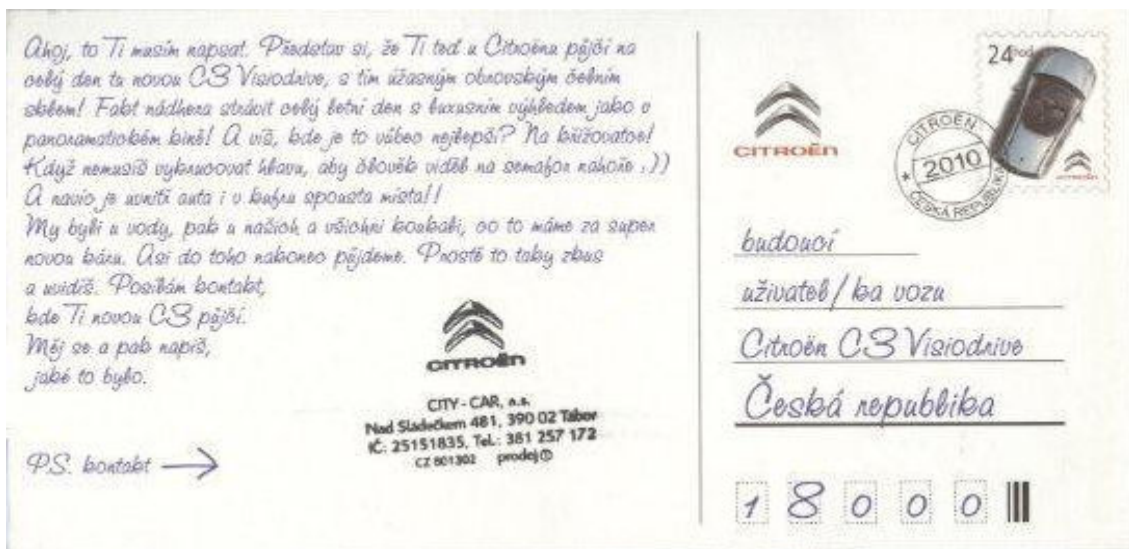 Ahoj, to Ti musím napsat. Představ si, že Ti teď u Citroënu půjčí na
celý den tu novou C3 Visiodrive, s tím úžasným obrovským čelním
sklem! Fakt nádhera strávit celý letní den s luxusním výhledem jako v
panoramatickém kině! A víš, kde je to vůbec nejlepší? Na křižovatce!
Když nemusíš vykrucovat hlavu, aby člověk viděl na semafor nahoře :))
A navíc je uvnitř auta i v kufru spousta místa!!
My byli u vody, pak u našich a všichni koukali, co to máme za super
novou káru. Asi do toho nakonec půjdeme. Prostě to taky zkus
a uvidíš. Posílám kontakt,
kde Ti novou C3 půjčí.
Měj se a pak napiš,
jaké to bylo.
P.S. kontakt
CITROËN
CITY - CAR, a.s.
Nad Sládečkem 481, 390 02 Tábor
IČ: 25151835, Tel.: 381 257 172
CZ 801302 prodej ①
CITROËN
24 hod
CITROËN
2010
ČESKÁ REPUBLIKA
CITROËN
budoucí
uživatel/ka vozu
Citroën C3 Visiodrive
Česká republika
1 8 0 0 0